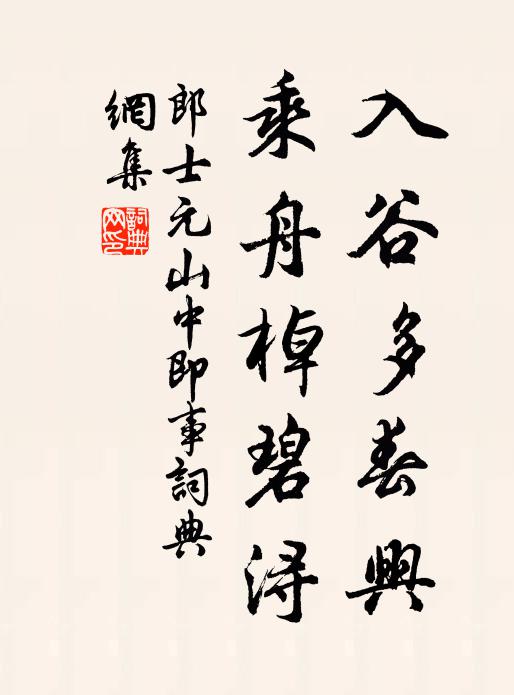 入谷多春興
乘舟棹碧浔
郎士元山中即事詞典
網集
詞典網印